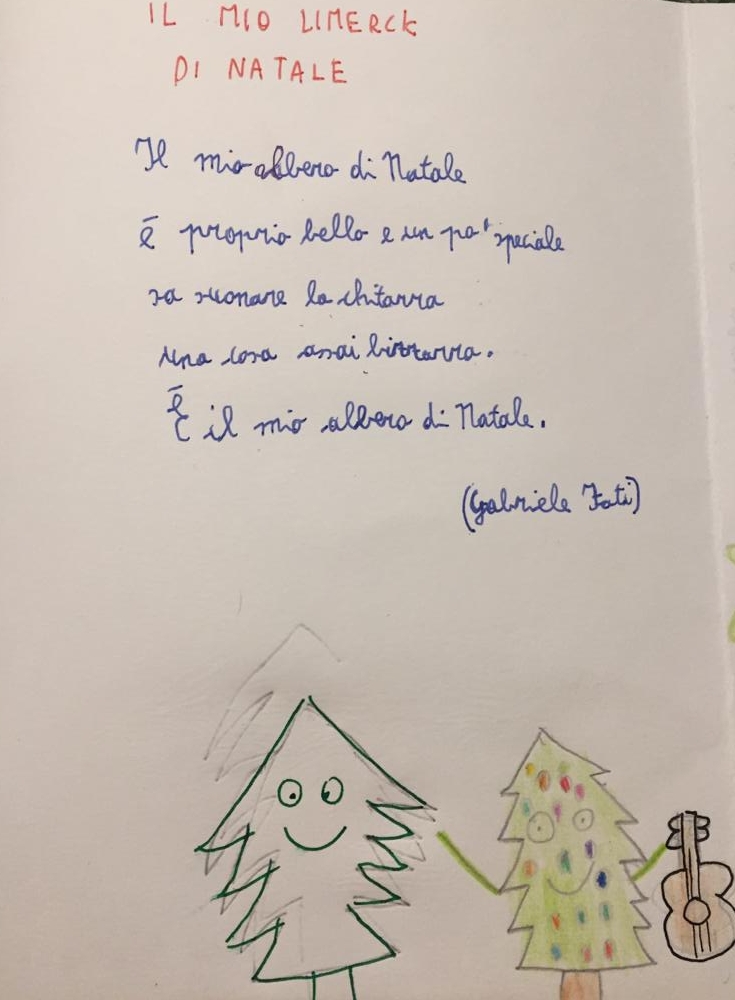 IL MIO LIMERCK
DI NATALE
Il mio albero di Natale
è proprio bello e un po' speciale
sa suonare la chitarra
una cosa assai bizzarra.
È il mio albero di Natale.
(Gabriele Fati)